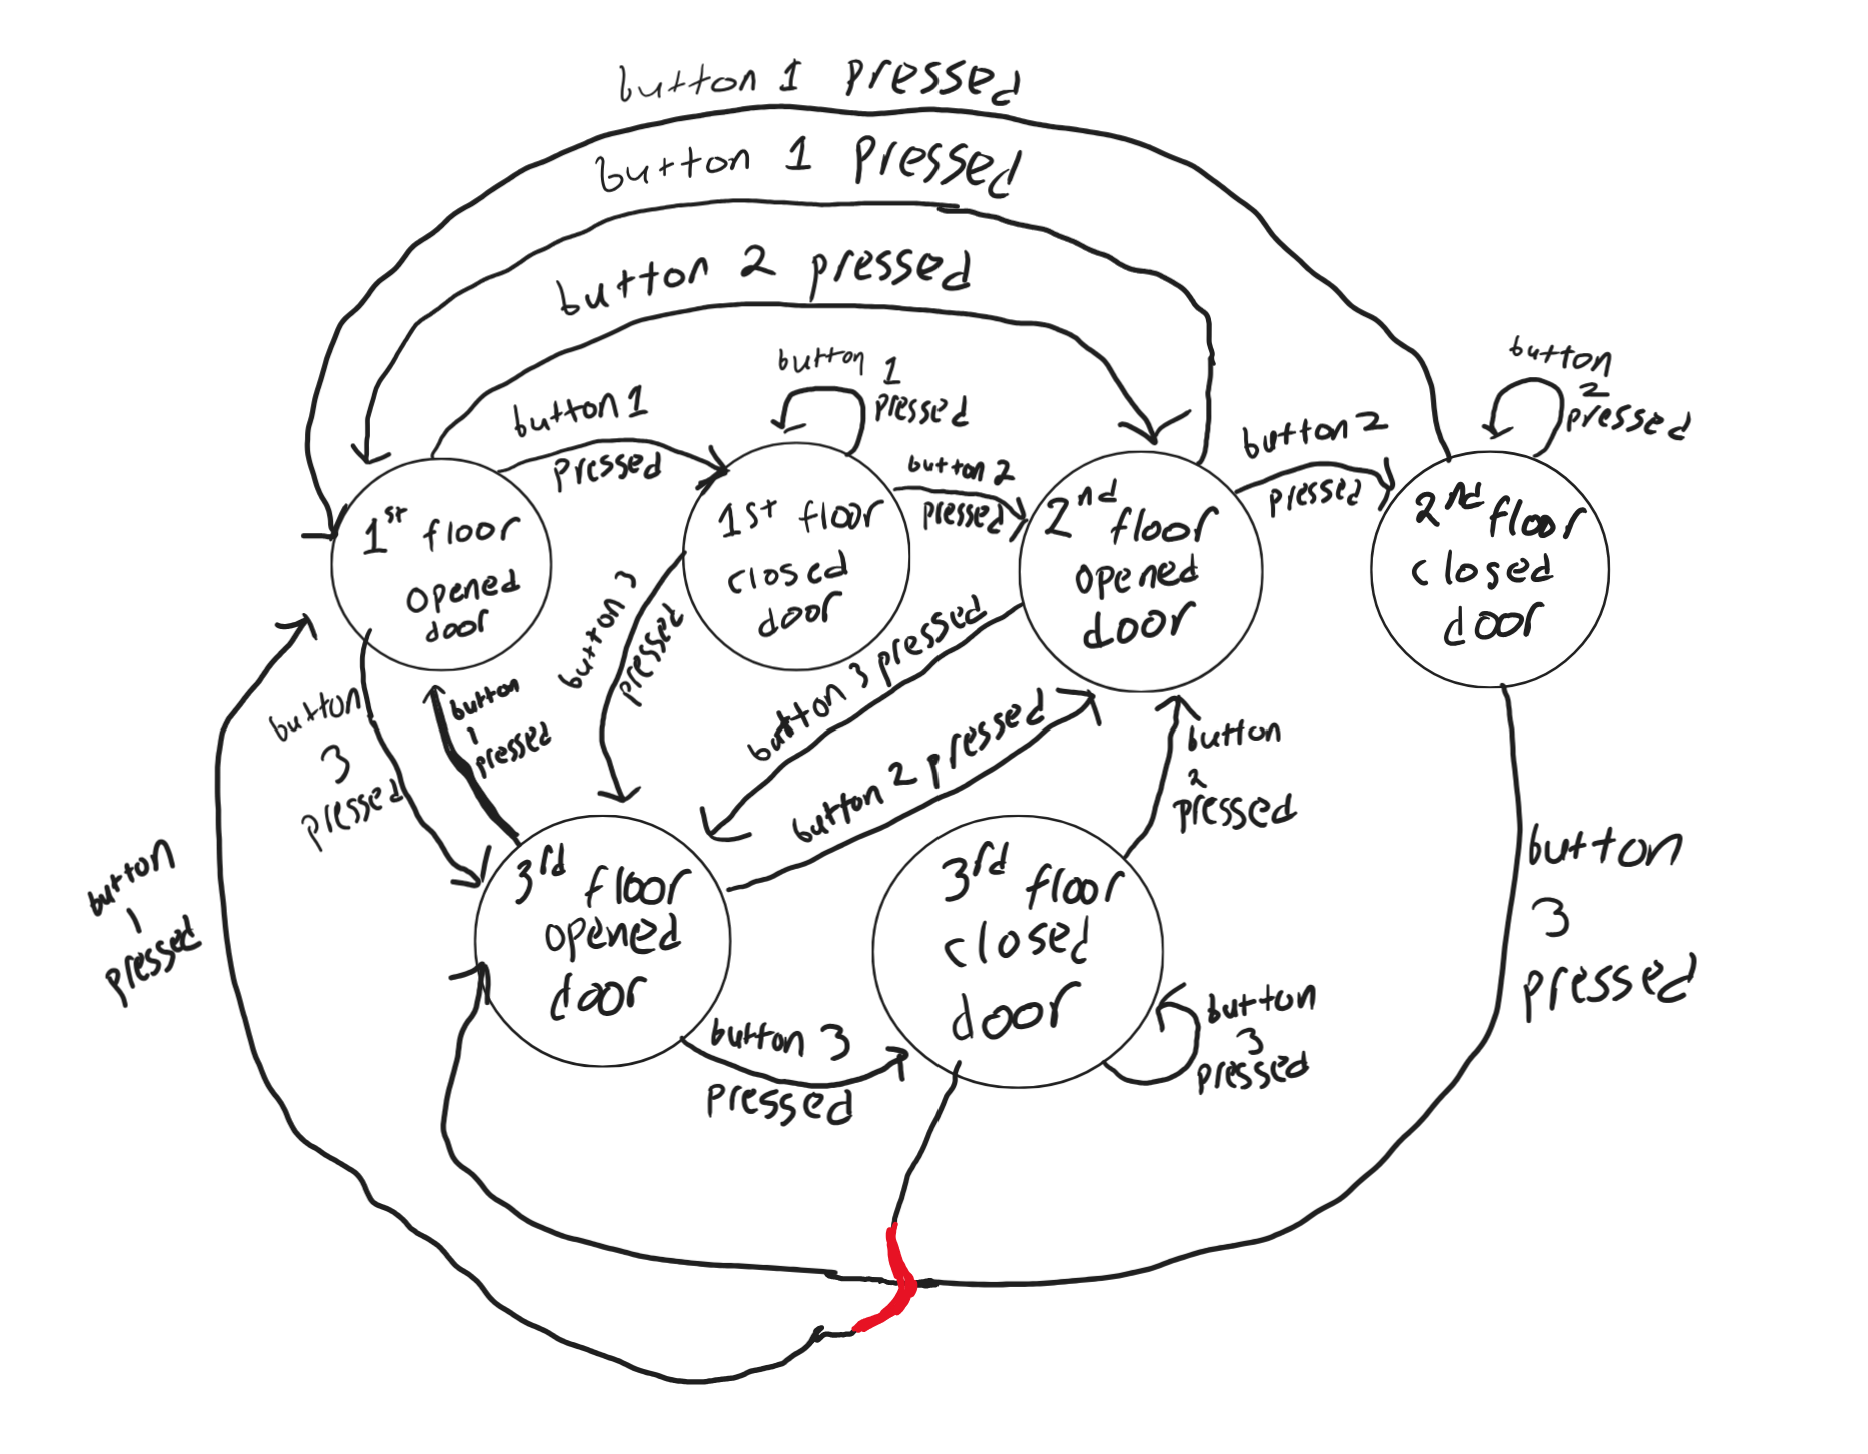 button 1 pressed
button 1 pressed
button 2 pressed
button 1
pressed
button 1
pressed
button 2
pressed
button 2
pressed
button
2
pressed
1st floor
opened
door
1st floor
closed
door
2nd
floor
opened
door
2nd floor
closed
door
button
3
pressed
button
1
pressed
button 3
pressed
button 3 pressed
button 2 pressed
button
2
pressed
button
1
pressed
3rd
floor
opened
door
3rd
floor
closed
door
button
3
pressed
button 3
pressed
button
3
pressed